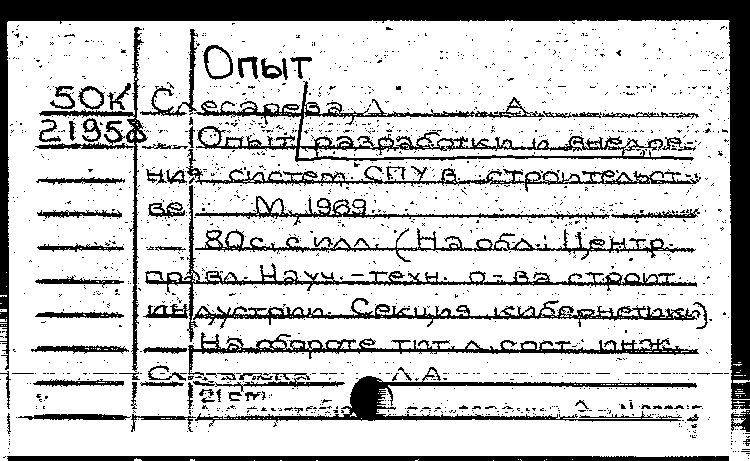 Опыт
50К Слесарева, Л. А.
21958 Опыт разработки и внедре-
ния систем СПУ в строительст-
ве М., 1969.
80с. с илл. (На обл.: Центр.
правл. Науч.-техн. о-ва строит.
индустрии. Секция кибернетики)
На обороте тит. л. сост. инж.
Слесарева Л.А.
21 cm